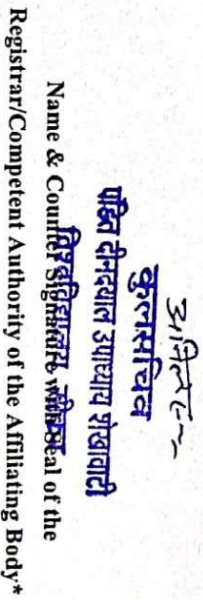 कुलसचिव
पंडित दीनदयाल उपाध्याय शेखावाटी
विश्वविद्यालय, सीकर
Name & Counter Signature with Seal of the
Registrar/Competent Authority of the Affiliating Body*